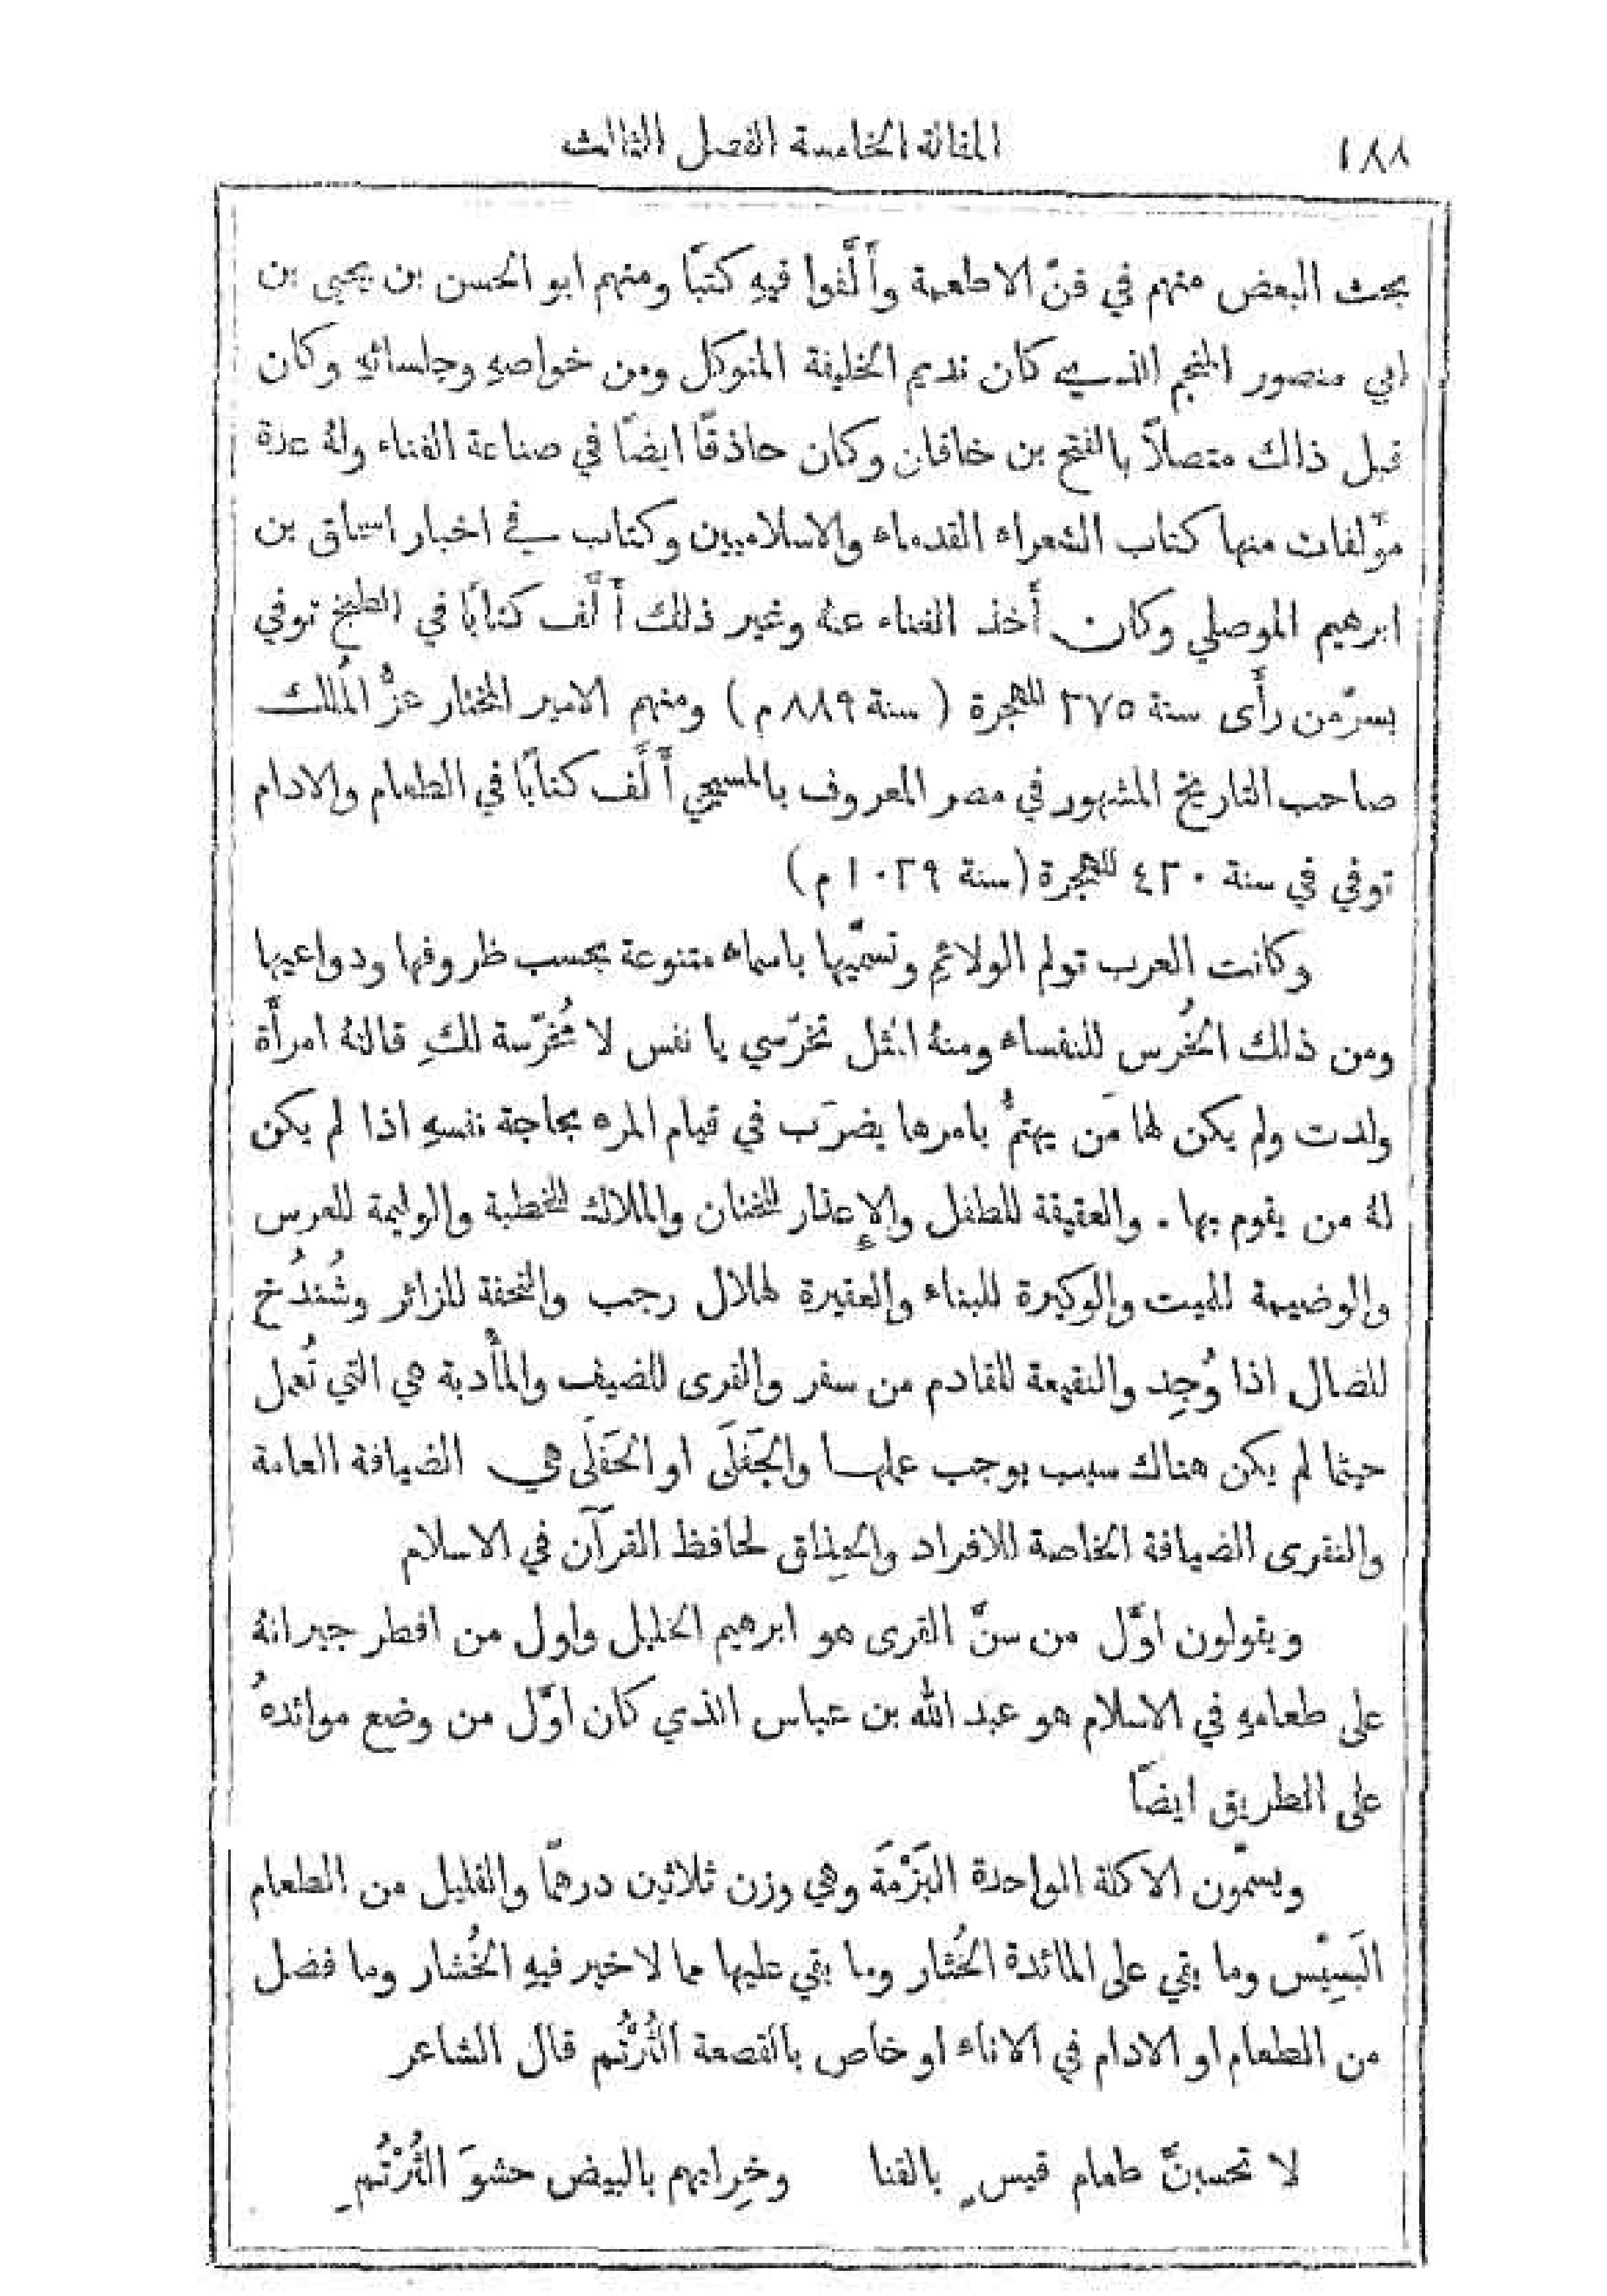 ١٨٨ المقالة الخامسة الفصل الثالث
بحث البعض منهم في فنّ الاطعمة وأَلَّفوا فيهِ كتبًا ومنهم ابو الحسن بن يحيى بن
ابي منصور المنجم الذي كان نديم الخليفة المتوكل ومن خواصهِ وجلسائهِ وكان
قبل ذالك متصلاً بالفتح بن خاقان وكان حاذقًا ايضًا في صناعة الغناء ولهُ عدة
مؤلفات منها كتاب الشعراء القدماء والاسلاميين وكتاب في اخبار اسحاق بن
ابرهيم الموصلي وكان أخذ الغناء عنهُ وغير ذلك أَلَّف كتابًا في الطبخ توفي
بسرّمن رأَى سنة ٢٧٥ للهجرة (سنة ٨٨٩ م) ومنهم الامير المختار عزُّ المُلك
صاحب التاريخ المشهور في مصر المعروف بالمسبحي أَلَّف كتابًا في الطعام والادام
توفي في سنة ٤٢٠ للهجرة (سنة ١٠٢٩ م)
وكانت العرب تولم الولائمِ وتسمّيها باسماء متنوعة بحسب ظروفها ودواعيها
ومن ذلك الخُرس للنفساء ومنهُ المثل تخرّسي يا نفس لا مُخرّسة لكِ قالتهُ امرأَة
ولدت ولم يكن لها مَن يهتمُّ بامرها يضرَب في قيام المرء بحاجة نفسهِ اذا لم يكن
لهُ من يقوم بها. والعقيقة للطفل والإعذار للختان والملاك للخطبة والوليمة للعرس
والوضيمة للميت والوكيرة للبناء والعقيرة لهلال رجب والتحفة للزائر وشُندُخ
للضال اذا وُجِد والنقيعة للقادم من سفر والقرى للضيف والمأْدبة هي التي تُعمل
حيثما لم يكن هناك سبب يوجب عملها والجَفَلَى او الحَفَلَى هي الضيافة العامة
والنقرى الضيافة الخاصة للافراد والحِذاق لحافظ القرآن في الاسلام
ويقولون اوَّل من سنَّ القرى هو ابرهيم الخليل واول من افطر جيرانهُ
على طعامهِ في الاسلام هو عبد الله بن عباس الذي كان اوَّل من وضع موائدهُ
على الطريق ايضًا
ويسمّون الاكلة الواحدة البَزْمَة وهي وزن ثلاثين درهمًا والقليل من الطعام
البَسِيْس وما بقي على المائدة الخُثار وما بقي عليها مما لا خير فيهِ الخُشار وما فضل
من الطعام او الادام في الاناء او خاص بالقصعة الثُرْتُم قال الشاعر
لا تحسبنَّ طعام قيسٍ بالقنا وخِرابهم بالبيض حشوَ الثُرْتُمِ